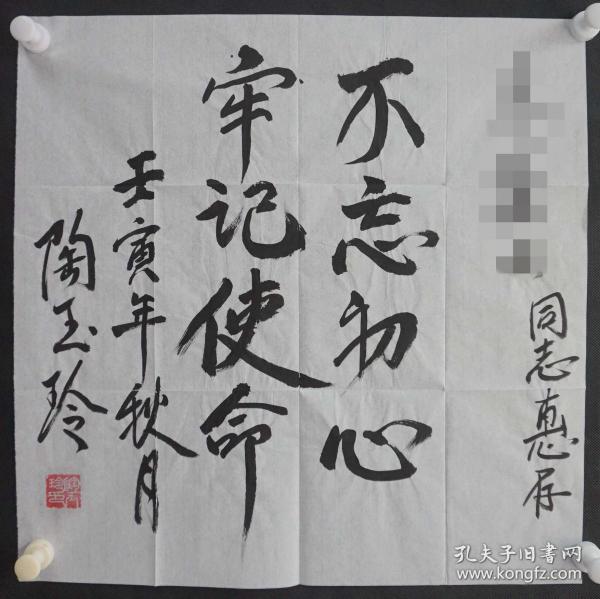 同志惠存
不忘初心
牢记使命
壬寅年秋月
陶玉玲
孔夫子旧書网
www.kongfz.com